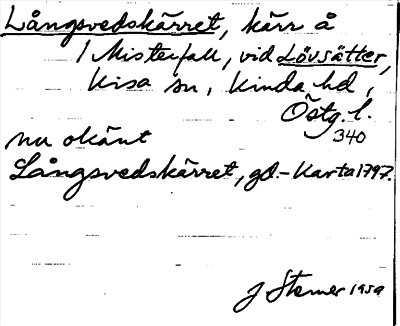 Långsvedskärret, kärr å
/ Misterfall, vid Lövsätter,
Kisa sn, Kinda hd,
Östg. l.
340
nu okänt
Långsvedskärret, gd.-Karta 1797.
J Sterner 1959